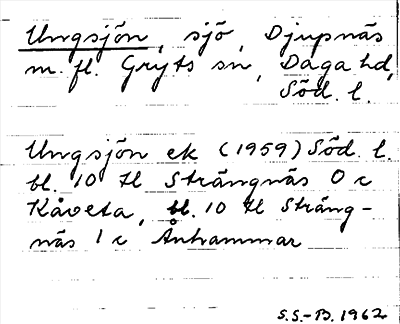 Ungsjön, sjö, Djupnäs
m. fl. Gryts sn, Daga hd,
Söd. l.
Ungsjön ek (1959) Söd. l.
bl. 10 tl Strängnäs O c
Kåveta, bl. 10 tl Sträng-
näs 1 c Ånhammar
S.S.-B. 1962